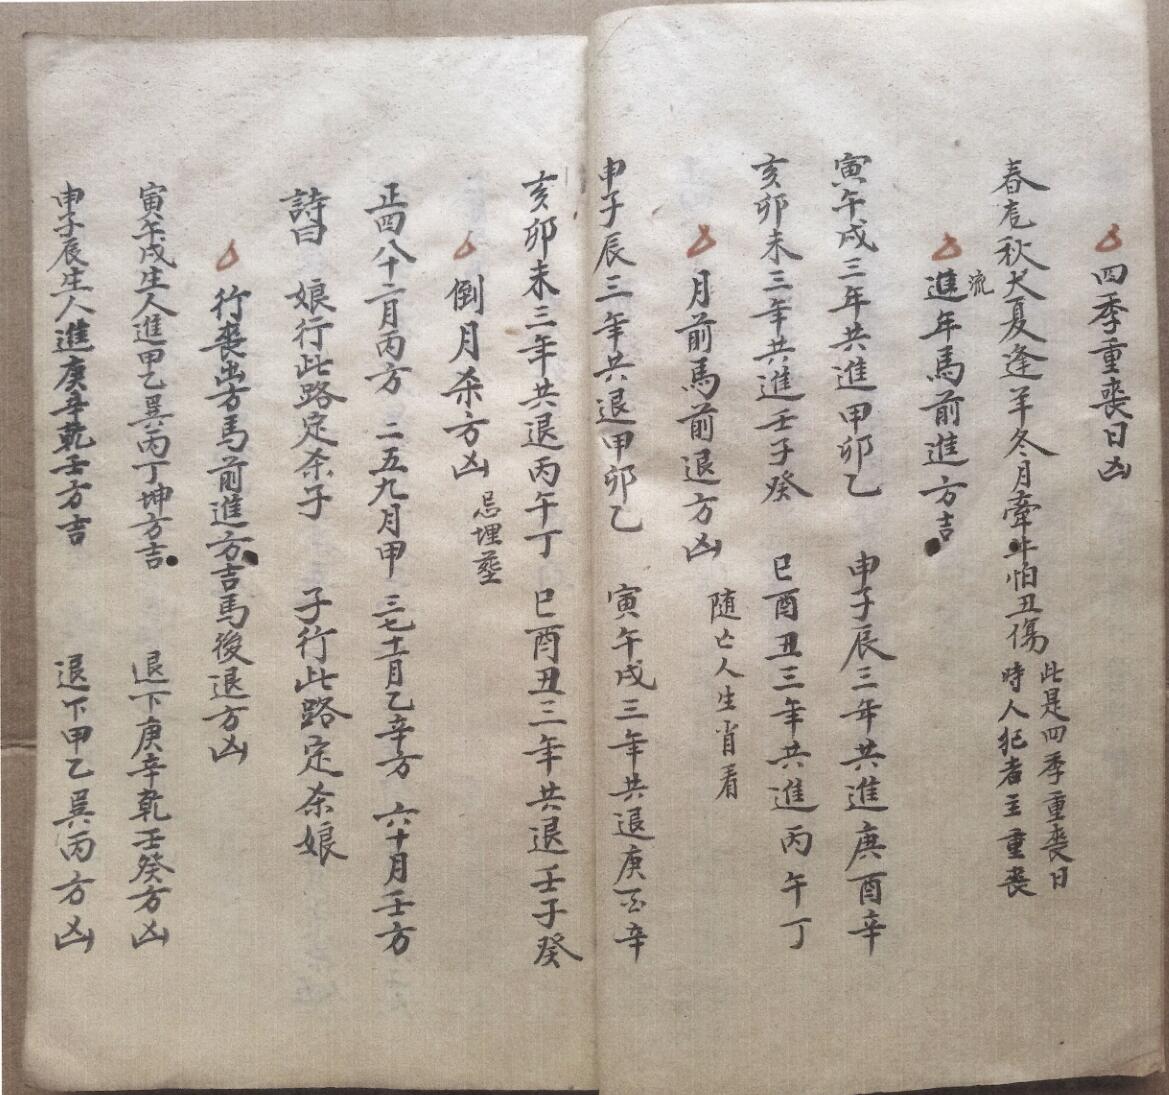 四季重喪日凶
春虎秋犬夏逢羊冬月牽牛怕丑傷
此是四季重喪日
時人犯者主重喪
進流年馬前進方吉
寅午戌三年共進甲卯乙 申子辰三年共進庚酉辛
亥卯未三年共進壬子癸 巳酉丑三年共進丙午丁
月前馬前退方凶 随亡人生肖看
申子辰三年共退甲卯乙 寅午戌三年共退庚酉辛
亥卯未三年共退丙午丁 巳酉丑三年共退壬子癸
倒月杀方凶 忌埋塟
正四八十二月丙方 二五九月甲 三七十一月乙辛方 六十月壬方
詩曰 娘行此路定杀子 子行此路定杀娘
行喪出方馬前進方吉馬後退方凶
寅午戌生人進甲乙巽丙丁坤方吉 退下庚辛乾壬癸方凶
申子辰生人進庚辛乾壬方吉 退下甲乙巽丙方凶